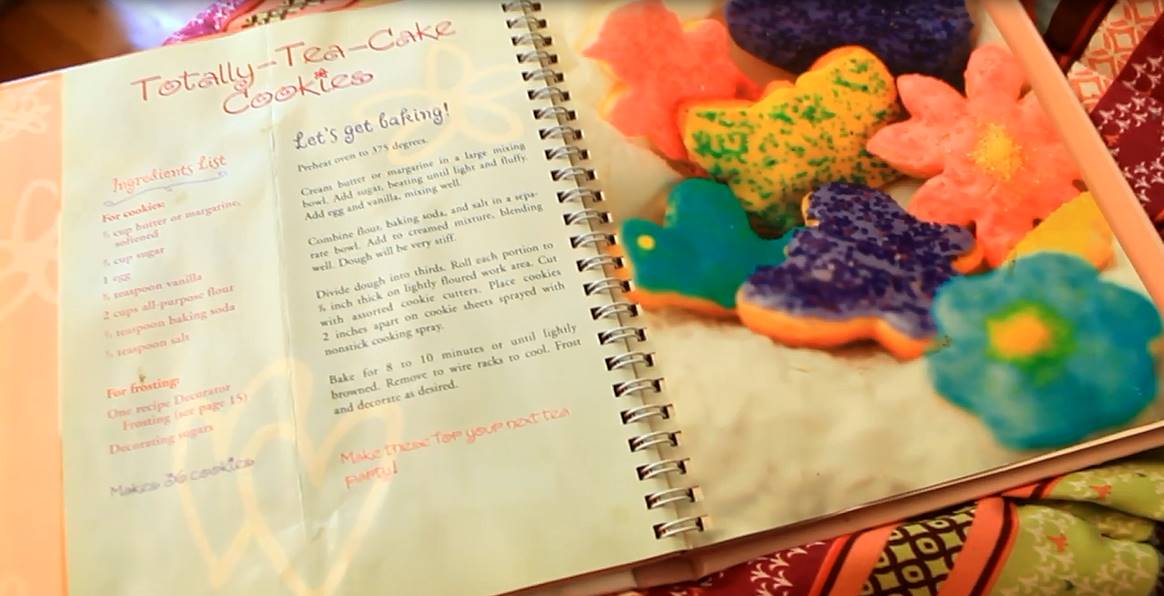 Totally-Tea-Cake
Cookies
Ingredients List
For cookies:
cup butter or margarine,
softened
cup sugar
1 egg
teaspoon vanilla
2 cups all-purpose flour
teaspoon baking soda
teaspoon salt
For frosting:
One recipe Decorator
Frosting (see page 15)
Decorating sugars
Makes 36 cookies
Let's get baking!
Preheat oven to 375 degrees.
Cream butter or margarine in a large mixing
bowl. Add sugar, beating until light and fluffy.
Add egg and vanilla, mixing well.
Combine flour, baking soda, and salt in a sepa-
rate bowl. Add to creamed mixture, blending
well. Dough will be very stiff.
Divide dough into thirds. Roll each portion to
inch thick on lightly floured work area. Cut
with assorted cookie cutters. Place cookies
2 inches apart on cookie sheets sprayed with
nonstick cooking spray.
Bake for 8 to 10 minutes or until lightly
browned. Remove to wire racks to cool. Frost
and decorate as desired.
Make these for your next tea
party!